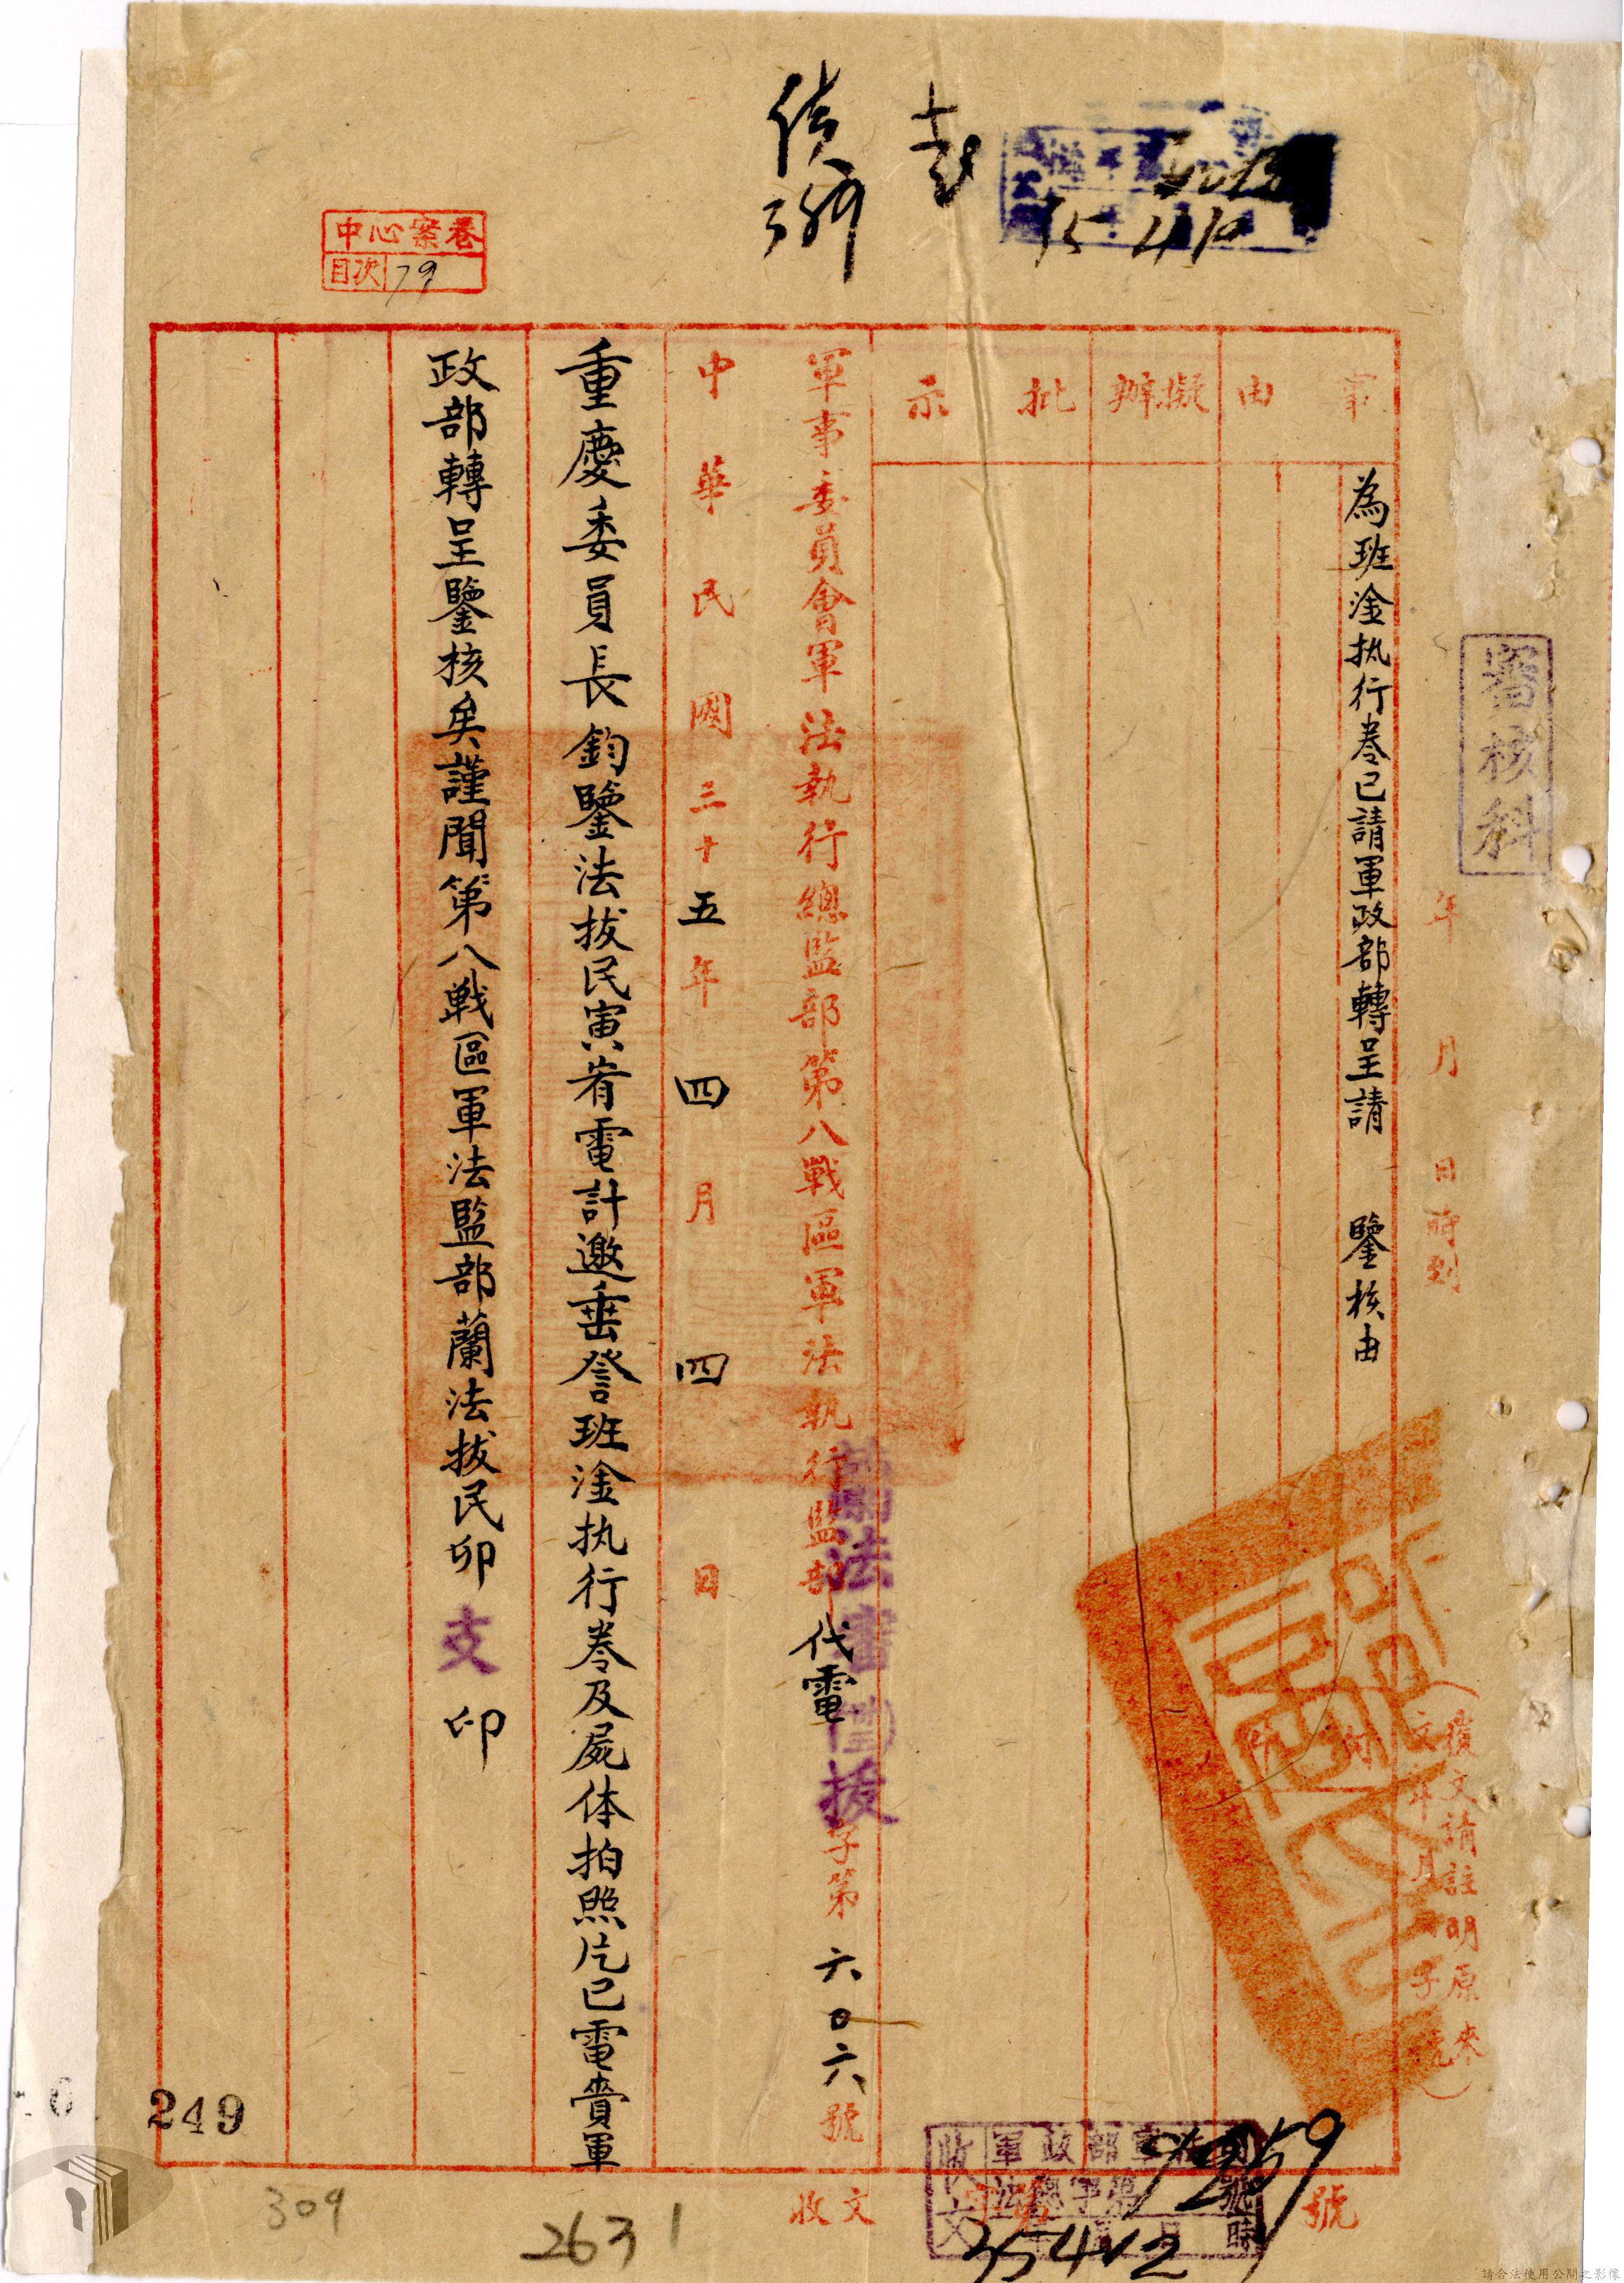 審核科
年 月 日 時到
（復文請註明原來
文 年 月 字 號）
事
由
為班淦执行卷已請軍政部轉呈請 鑒核由
附
件
擬辦
批
示
軍事委員會軍法執行總監部第八戰區軍法執行監部代電
蘭法審
拔
字第六〇六號
中華民國三十五年四月四日
重慶委員長鈞鑒法拔民寅宥電計邀垂詧班淦执行卷及屍体拍照片已電賫軍
政部轉呈鑒核矣謹聞第八戰區軍法監部蘭法拔民卯支印
中心案卷
目次 79
35 4 10
收文 字第 號
軍政部軍法
收文
35 4 12
249
309
2631
請合法使用公開之影像